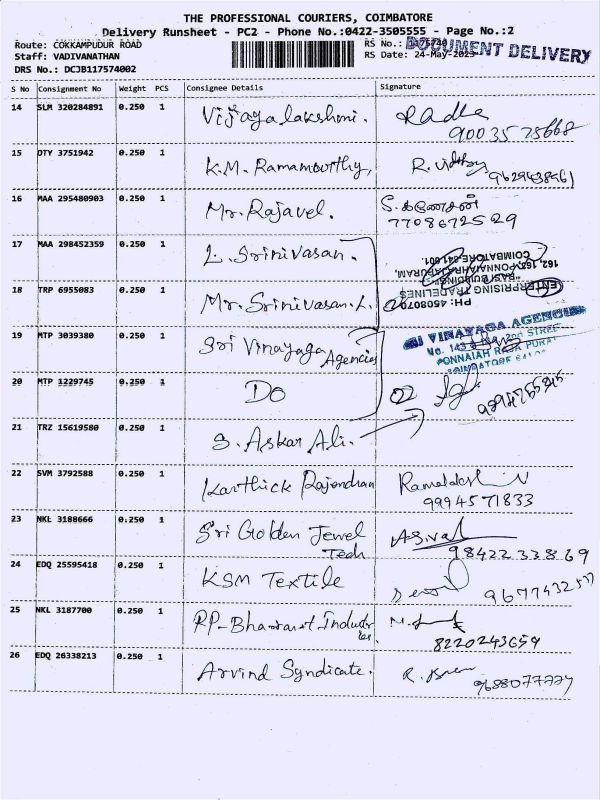 THE PROFESSIONAL COURIERS, COIMBATORE
Delivery Runsheet - PC2 - Phone No.:0422-3505555 - Page No.:2
Route: COKKAMPUDUR ROAD
RS No.:
DOCUMENT DELIVERY
Staff: VADIVANATHAN
RS Date: 24-May-2023
DRS No.: DCJB117574002
S No Consignment No Weight PCS Consignee Details Signature
14 SLM 320284891 0.250 1 Vijayalakshmi. Radha
90035 75668
15 DTY 3751942 0.250 1 K.M. Ramamoorthy,
9629438961
16 MAA 295480903 0.250 1 Mr. Rajavel. S. கணேசன்
7708672529
17 MAA 298452359 0.250 1 L. Srinivasan.
162, 163, PONNAIAHRAJAPURAM,
COIMBATORE-641 001.
ENTERPRISING TRADELINES
18 TRP 6955083 0.250 1 Mr. Srinivasan. L.
19 MTP 3039380 0.250 1 Sri Vinayaga Agencies
VINAYAGA AGENCIES
20 MTP 1229745 0.250 1 Do 02
21 TRZ 15619580 0.250 1 S. Askar Ali.
22 SVM 3792588 0.250 1 Karthick Rajendran
9994571833
23 NKL 3188666 0.250 1 Sri Golden Jewel Tech
98422 33869
24 EDQ 25595418 0.250 1 KSM Textile
25 NKL 3187700 0.250 1 RP-Bharat Industries.
8220243659
26 EDQ 26338213 0.250 1 Arvind Syndicate.